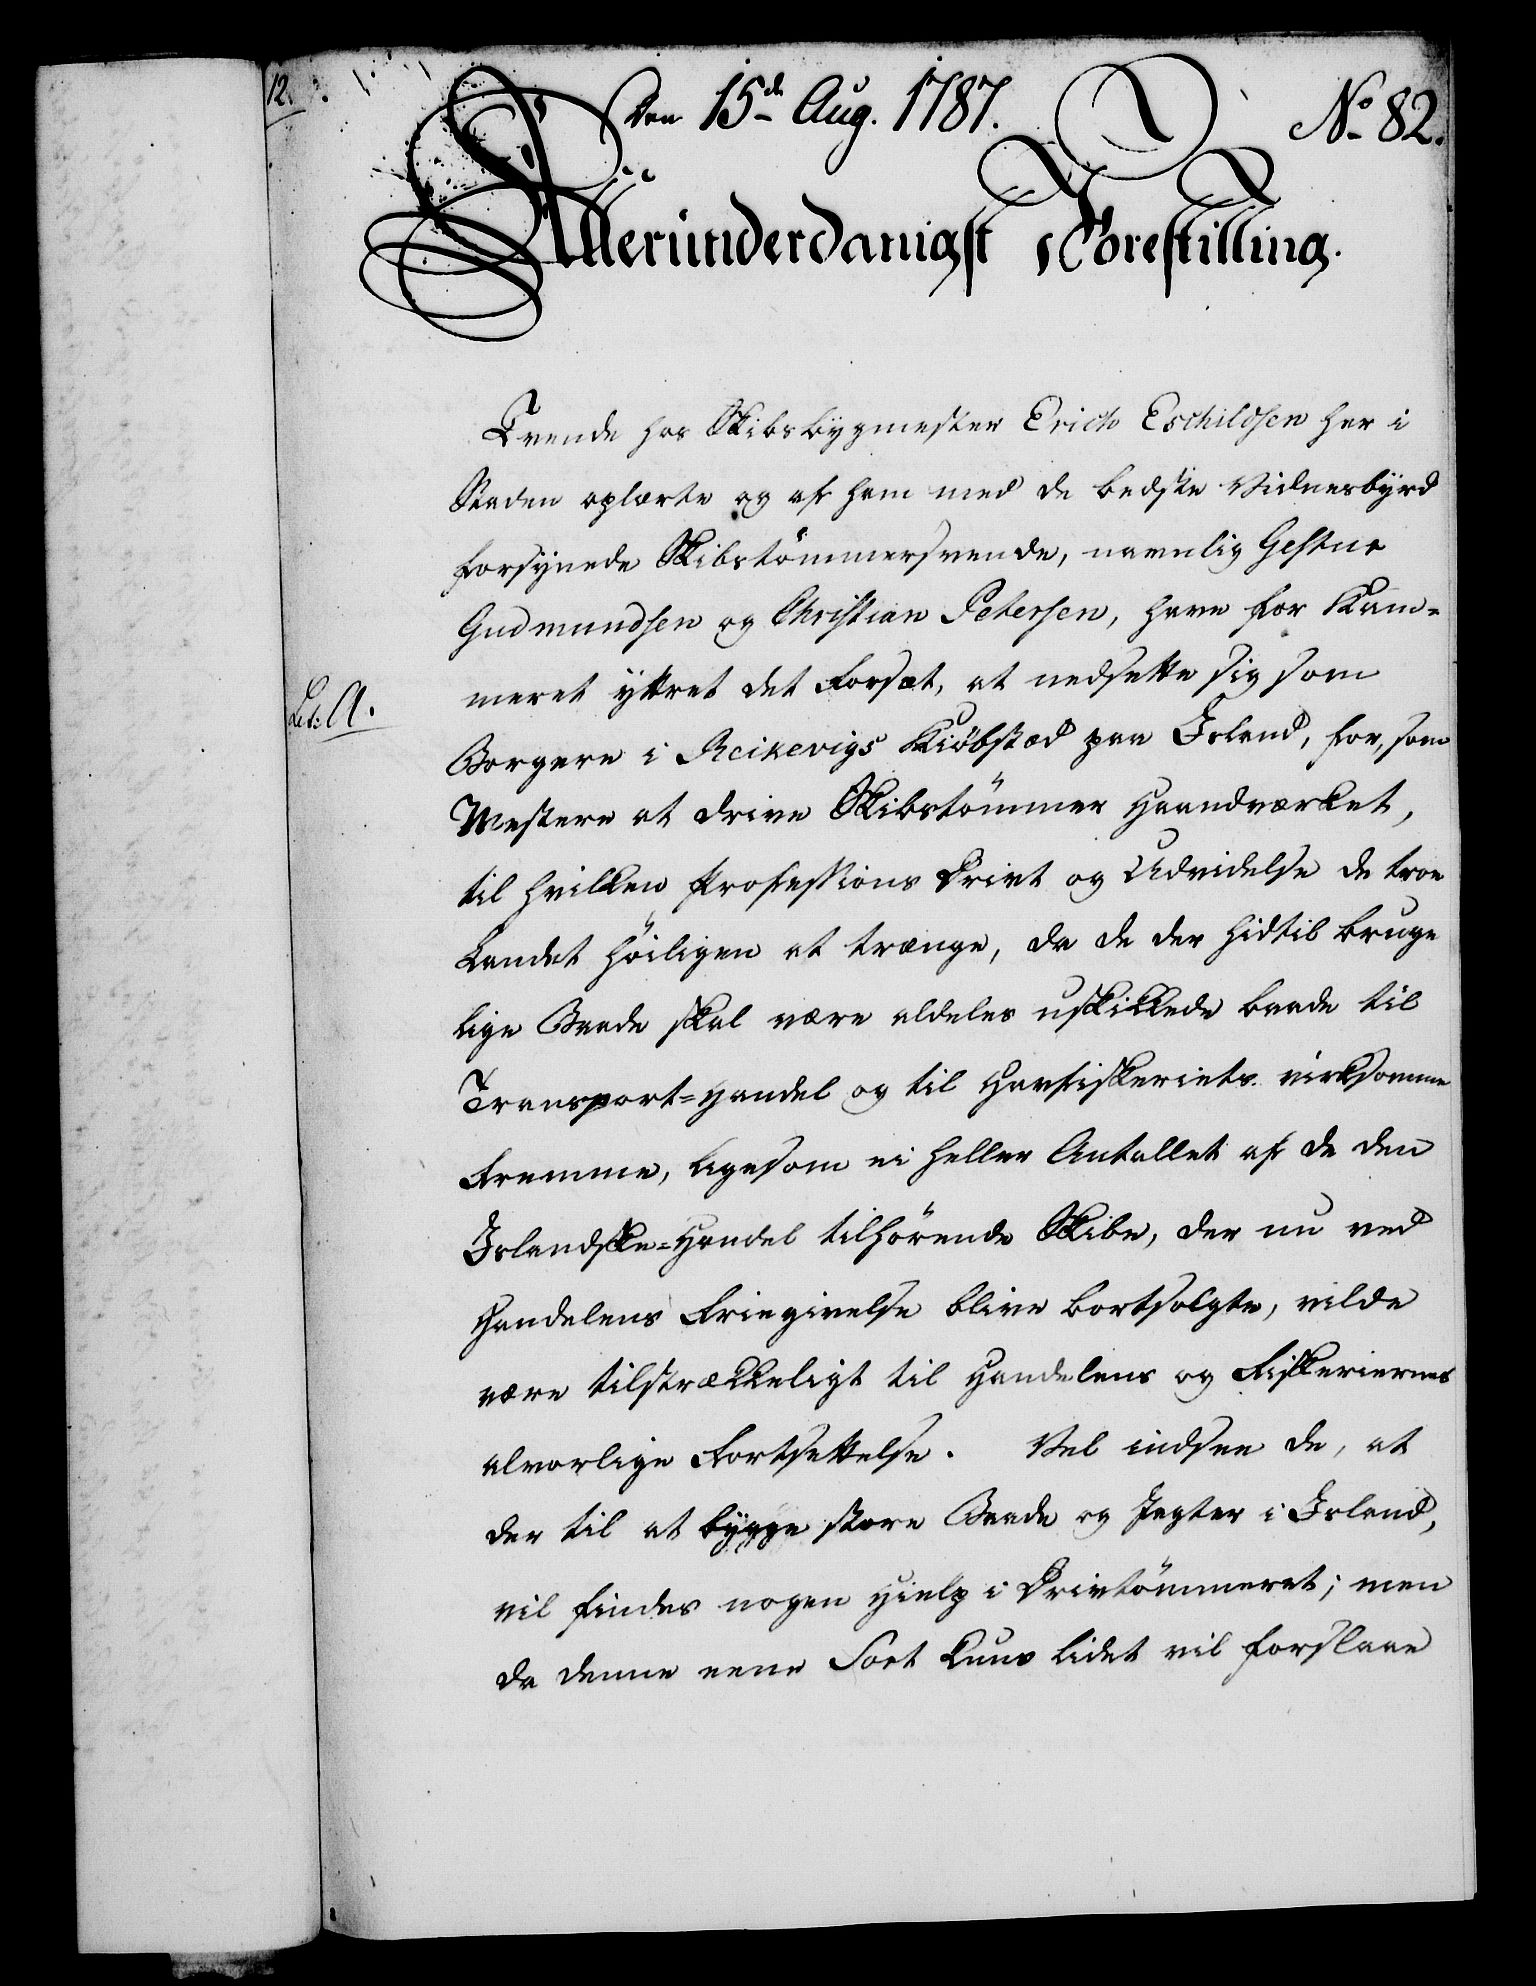 12.
Den 15de Aug. 1787.
No 82.
Alleründerdanigst Forestilling.
Tvende hos Skibsbygmester Erich Eschildsen her i
Staden oplærte og af ham med de bedste Vidnesbyrd
forsynede Skibstömmersvende, navnlig Gestur
Gudmundsen og Christian Petersen, have for Kam=
meret yttret det Forsæt, at nedsette sig som
Lit: A.
Borgere i Reikevigs Kiöbstæd paa Island, for, som
Mestere at drive Skibstömmer Haandværket,
til hvilken Professions Drivt og Udvidelse de troe
Landet höiligen at trænge, da de der hidtil bruge
lige Baade skal være aldeles uskikkede baade til
Transport=Handel og til Havfiskeriets virksomme
Fremme, ligesom ei heller Antallet af de den
Islandske=Handel tilhörende Skibe, der nu ved
Handelens Friegivelse blive bortsolgte, vilde
være tilstrækkeligt til Handelens og Fiskeriernes
alvorlige Fortsettelse. Vel indsee de, at
der til at bygge store Baade og Jagter i Island,
vil findes nogen Hielp i Drivtömmeret; men
da denne eene Sort kuns lidet vil forslaae